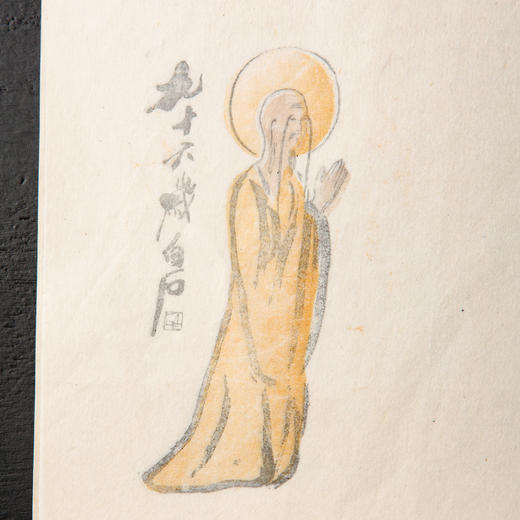 九十六岁白石